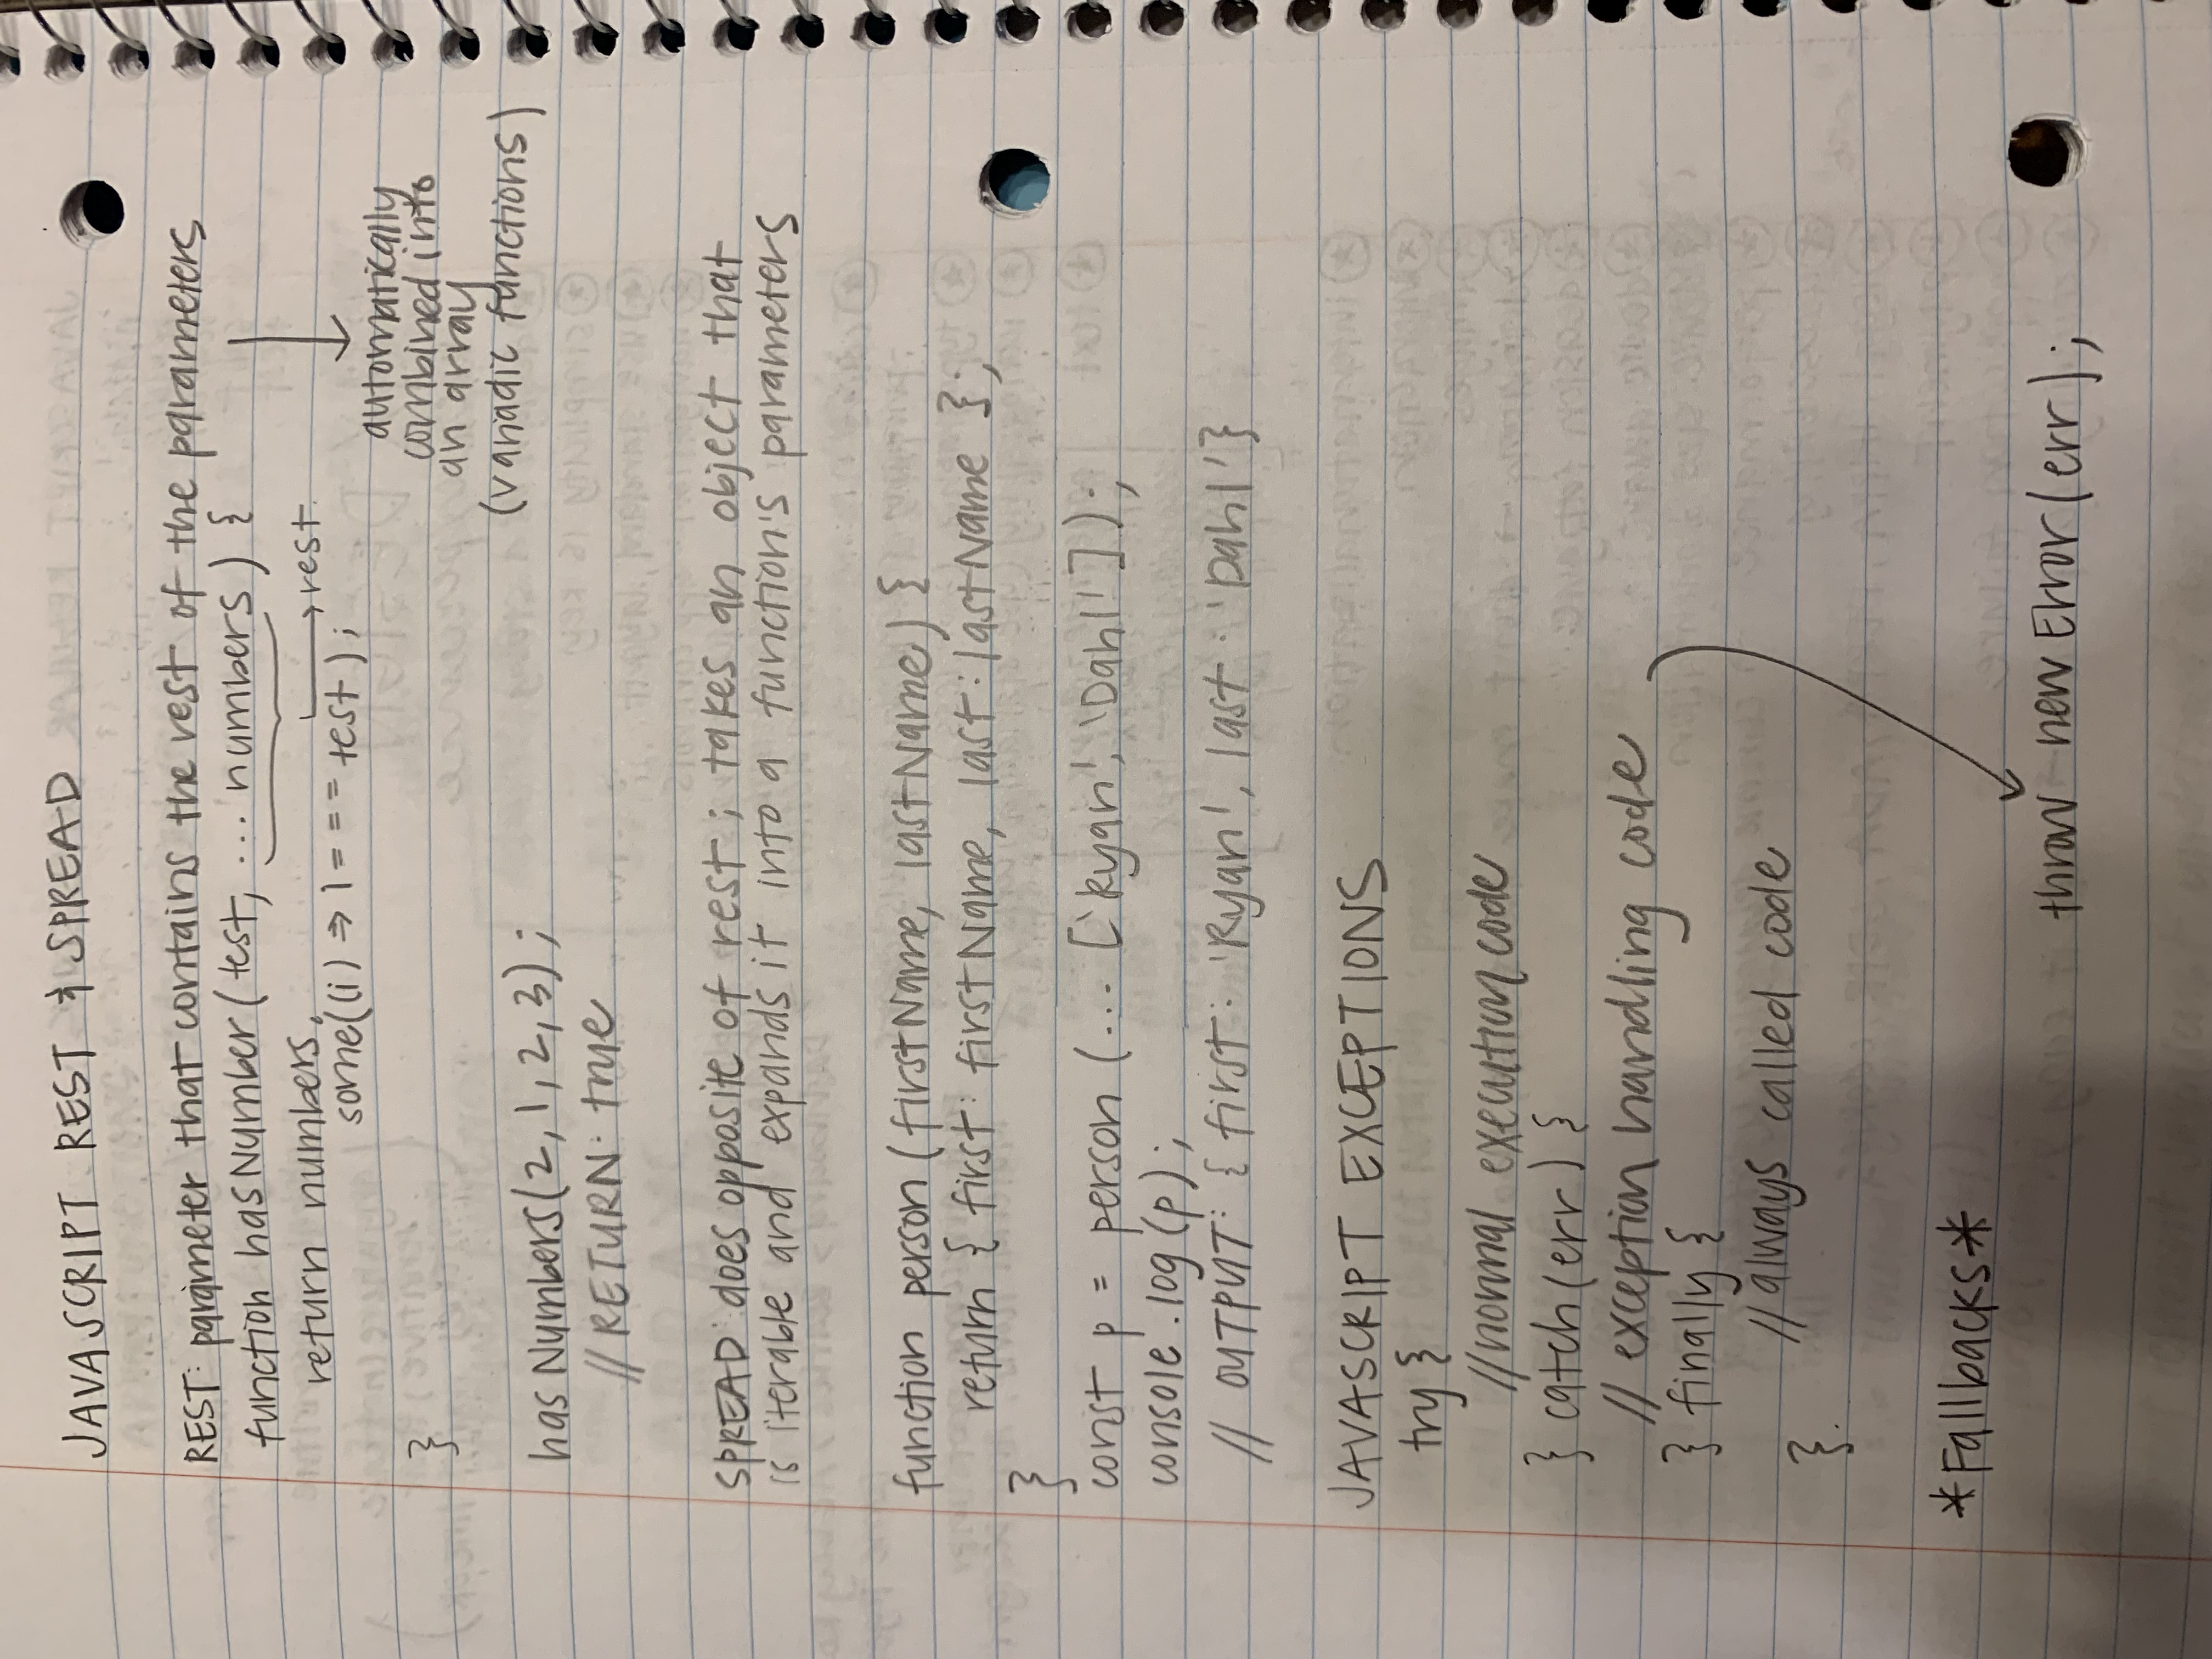 JAVASCRIPT REST & SPREAD
REST: parameter that contains the rest of the parameters
function hasNumber(test, ... numbers) {
return numbers.
→ rest
some((i) => i === test);
}
automatically
combined into
an array
(variadic functions)
hasNumbers(2, 1, 2, 3);
// RETURN: true
SPREAD: does opposite of rest; takes an object that
is iterable and expands it into a function's parameters
function person (firstName, lastName) {
return { first: firstName, last: lastName };
}
const p = person (... ['Ryan', 'Dahl']);
console.log(p);
// OUTPUT: { first: 'Ryan', last: 'Dahl'}
JAVASCRIPT EXCEPTIONS
try {
//normal execution code
} catch(err) {
// exception handling code
} finally {
// always called code
}
*Fallbacks*
throw new Error(err);